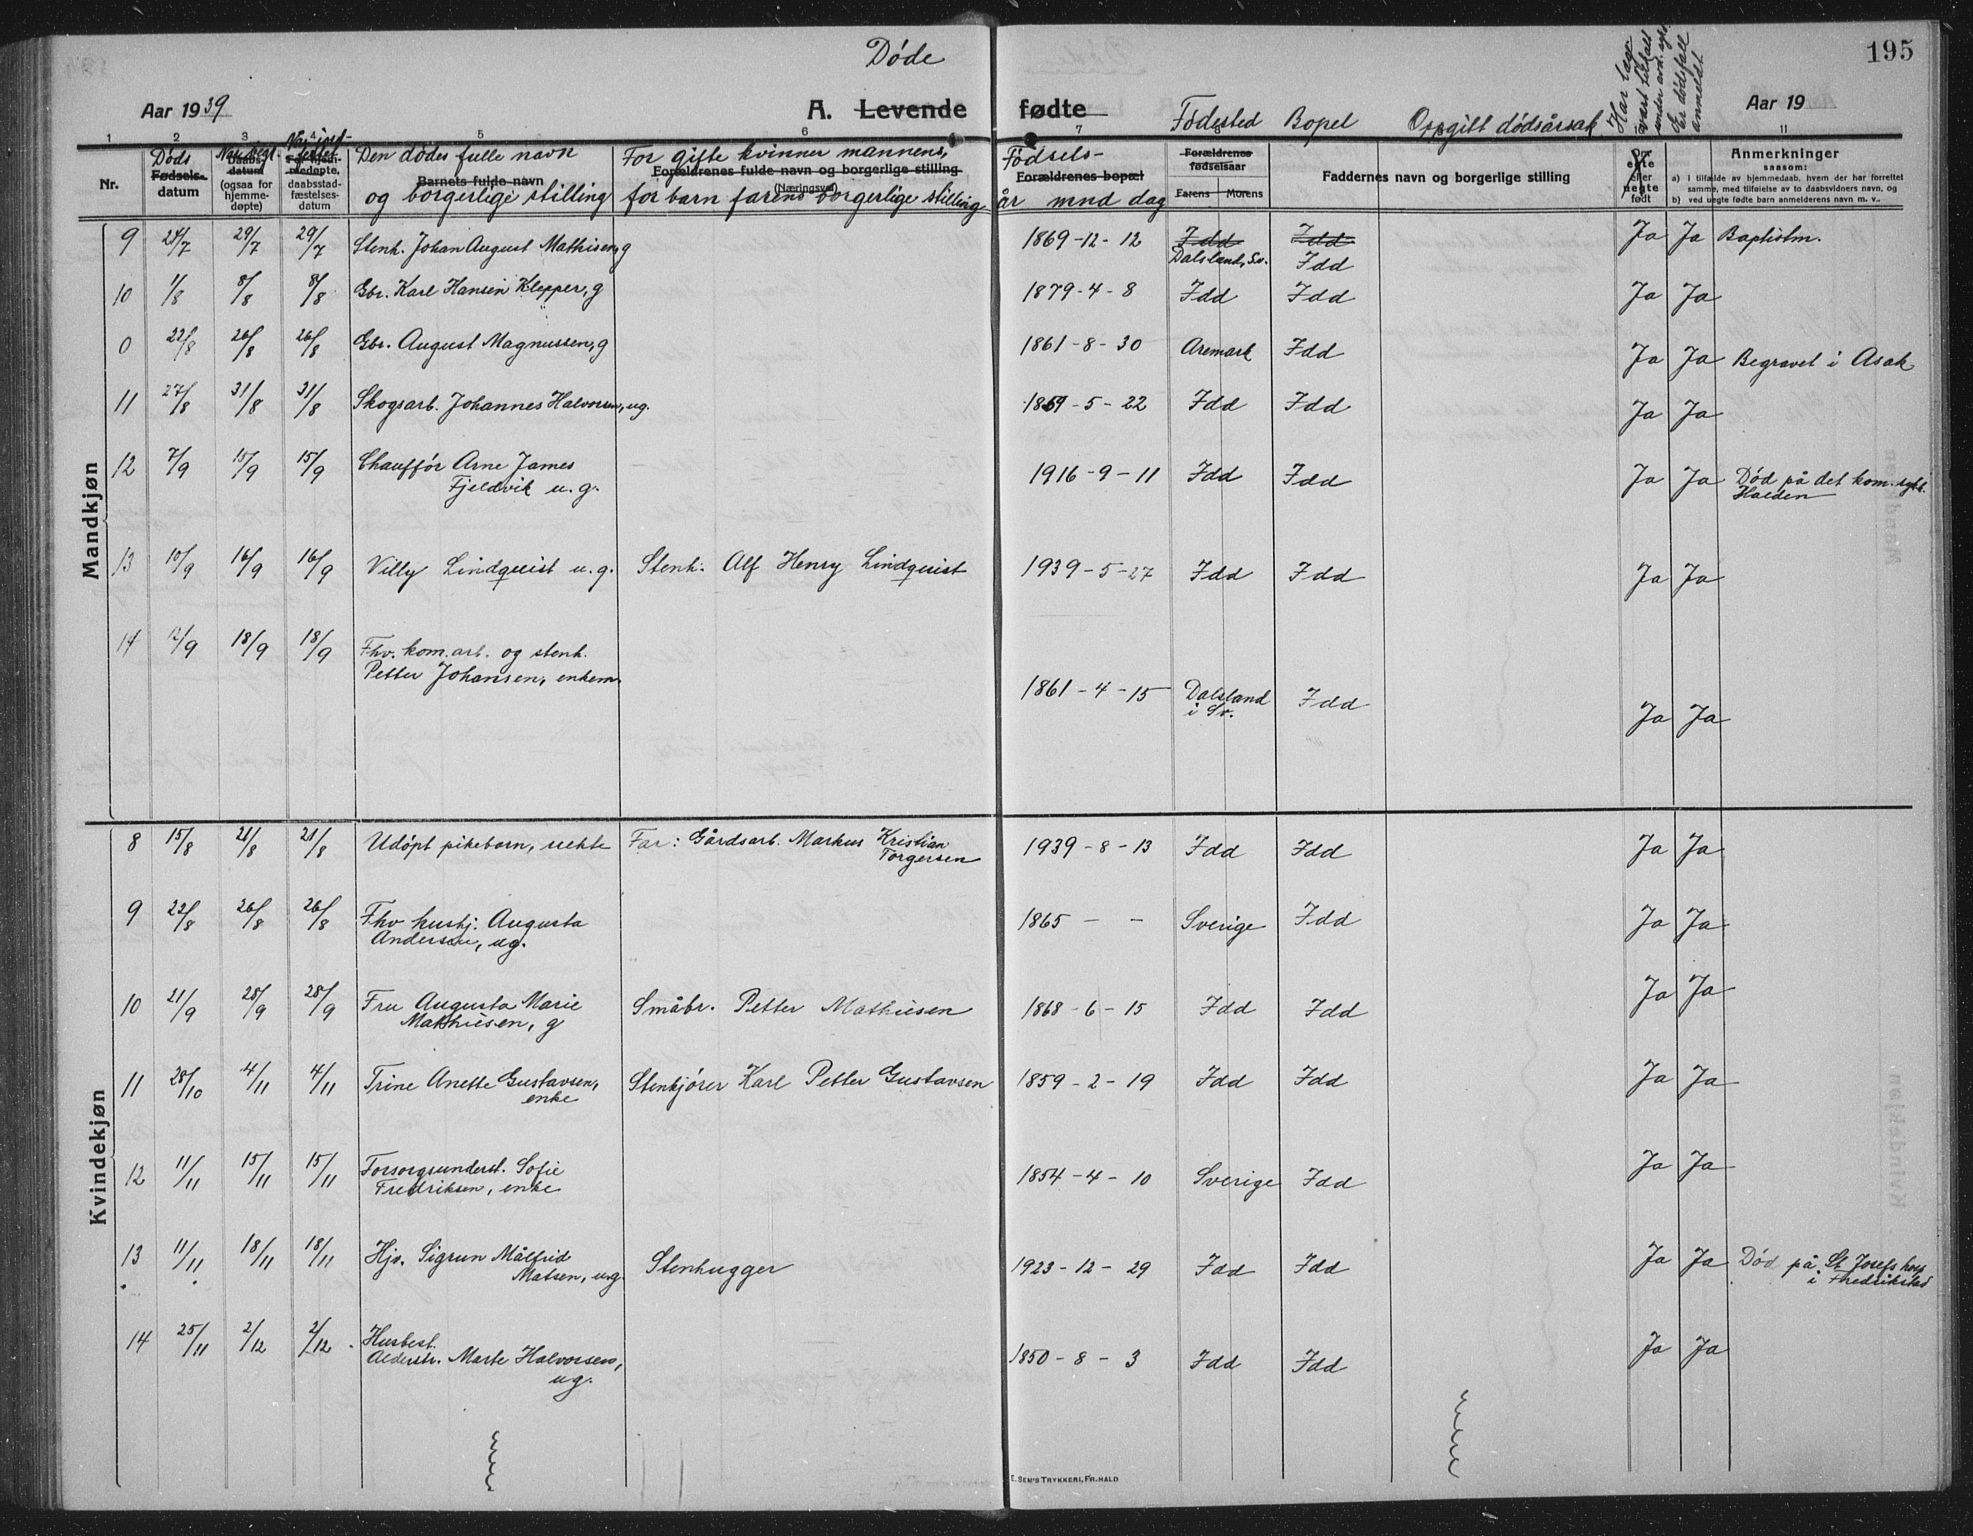 Døde
195
Aar 1939
A. Levende fødte
Fødested Bopel Oppgitt dødsårsak
Aar 19
1 2 3 4 5 6 7 11
Nr.
Døds
Fødsels-
datum
Daabs-
datum
(ogsaa for
hjemme-
døpte)
daabsstad-
fæstelses-
datum
Den dødes fulle navn
Barnets fulde navn
og borgerlige stilling
For gifte kvinner mannens,
Forældrenes fulde navn og borgerlige stilling
(Næringsvei)
for barn farens borgerlige stilling
Fødsels-
Forældrenes bopæl
år mnd dag
Forældrenes
fødselsaar
Farens Morens
Faddernes navn og borgerlige stilling
Om
egte
eller
uegte
født
Anmerkninger
saasom:
a) I tilfælde av hjemmedaab, hvem der har forrettet
samme, med tilføielse av to daabsvidners navn, og
b) ved uegte fødte barn anmelderens navn m. v.
Mandkjøn
9 24/7 29/7 29/7 Stenh. Johan August Mathisen, g 1869-12-12 Idd Idd Ja Ja Baptistm.
Dalsland, Sv. Idd
10 1/8 8/8 8/8 Gbr. Karl Hansen Klepper, g 1879-4-8 Idd Idd Ja Ja
0 22/8 26/8 26/8 Gbr. August Magnussen, g 1861-8-30 Aremark Idd Ja Ja Begravet i Asak
11 27/8 31/8 31/8 Skogsarb. Johannes Halvorsen, ug. 1869-5-22 Idd Idd Ja Ja
12 7/9 15/9 15/9 Chauffør Arne James
Fjeldvik u.g. 1916-9-11 Idd Idd Ja Ja Død på det kom. sykh.
Halden
13 10/9 16/9 16/9 Villy Lindqueist u.g. Stenh. Alf Henry Lindqueist 1939-5-27 Idd Idd Ja Ja
14 12/9 18/9 18/9 Fhv. kom.arb. og stenh.
Petter Johansen, enkem. 1861-4-15 Dalsland
i Sv. Idd Ja Ja
Kvindekjøn
8 15/8 21/8 21/8 Udøpt pikebarn, uekte Far: Gårdsarb. Markus Kristian
Torgersen 1939-8-13 Idd Idd Ja Ja
9 22/8 26/8 26/8 Fhv hushj. Augusta
Andersen, ug. 1865 - - Sverige Idd Ja Ja
10 21/9 28/9 28/9 Fru Augusta Marie
Mathiesen, g Småbr. Petter Mathiesen 1868-6-15 Idd Idd Ja Ja
11 28/10 4/11 4/11 Trine Anette Gustavsen,
enke Stenkjører Karl Petter Gustavsen 1859-2-19 Idd Idd Ja Ja
12 11/11 15/11 15/11 Forsorgsunderst. Sofie
Fredriksen, enke 1854-4-10 Sverige Idd Ja Ja
13 11/11 18/11 18/11 Hjv. Sigrun Målfrid
Matsen, ug. Stenhugger 1923-12-29 Idd Idd Ja Ja Død på St. Josefs hosp
i Fredrikstad
14 25/11 2/12 2/12 Husbest.
Alderstr. Marte Halvorsen,
ug. 1850-8-3 Idd Idd Ja Ja
E. SEM'S TRYKKERI, FR.HALD